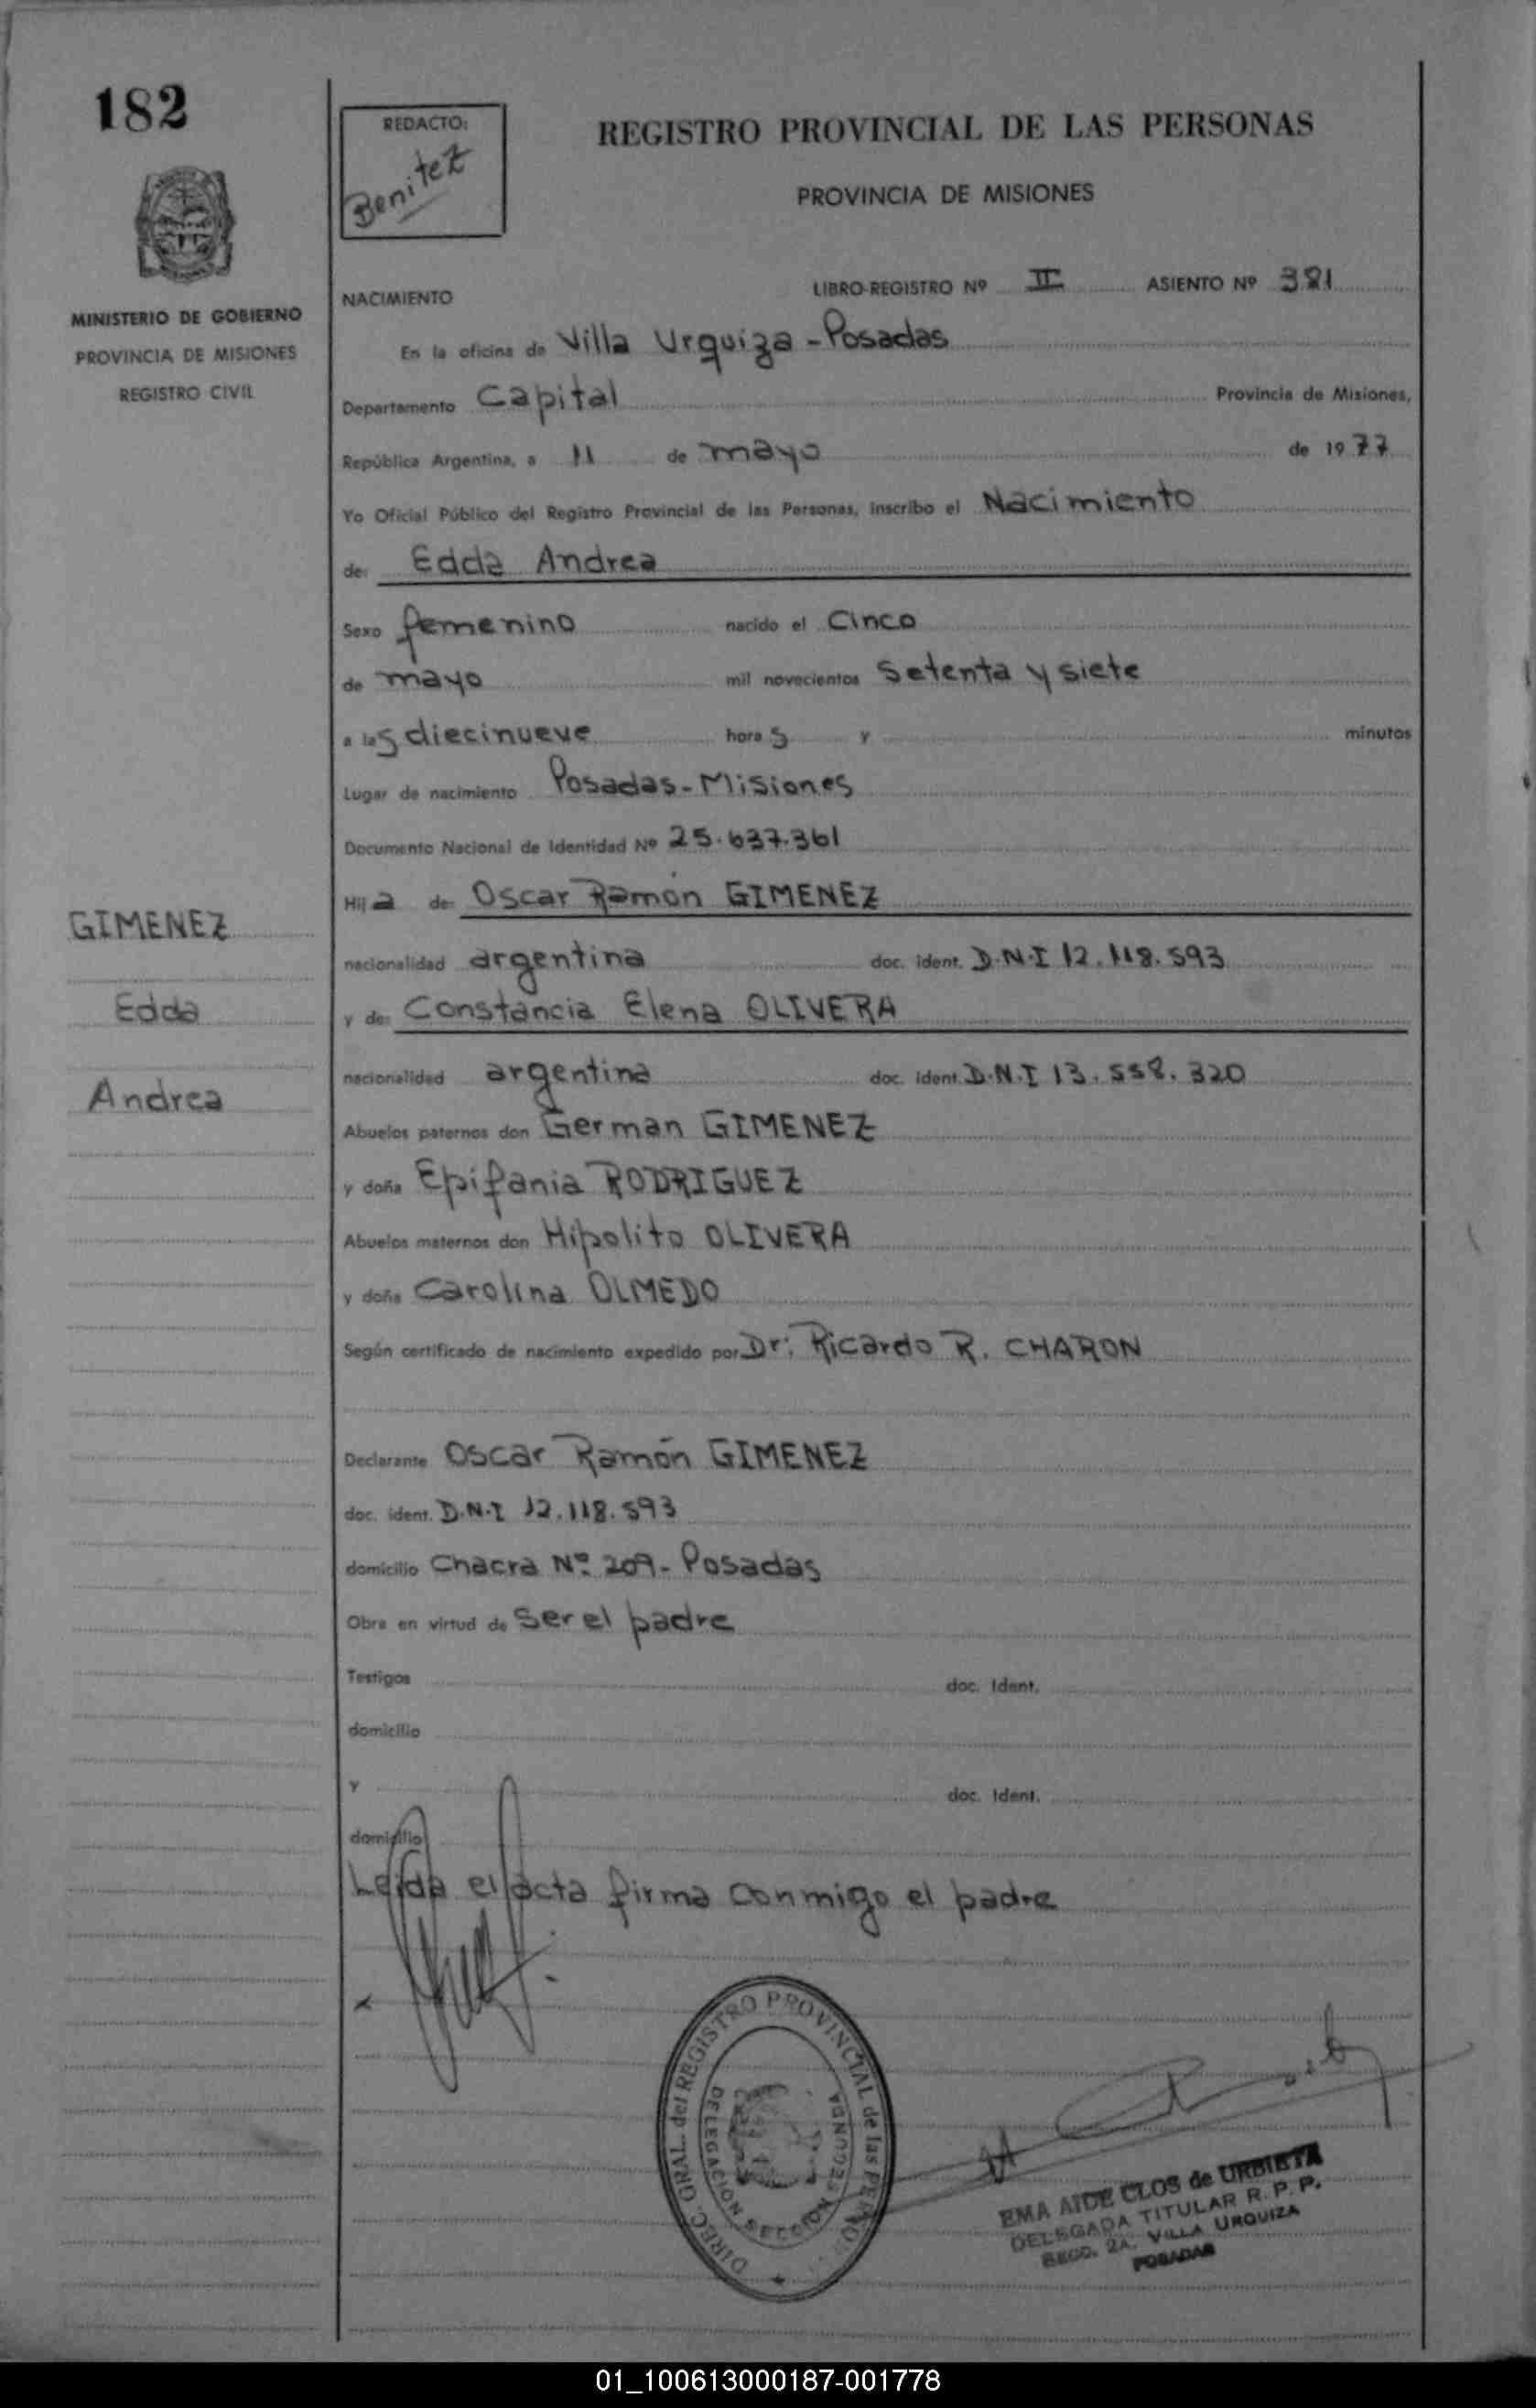 182
REDACTO:
Benitez
REGISTRO PROVINCIAL DE LAS PERSONAS
PROVINCIA DE MISIONES
MINISTERIO DE GOBIERNO
PROVINCIA DE MISIONES
REGISTRO CIVIL
NACIMIENTO LIBRO-REGISTRO Nº II ASIENTO Nº 381
En la oficina de Villa Urquiza - Posadas
Departamento Capital Provincia de Misiones,
República Argentina, a 11 de mayo de 1977
Yo Oficial Público del Registro Provincial de las Personas, inscribo el Nacimiento
de: Edda Andrea
Sexo femenino nacido el Cinco
de mayo mil novecientos Setenta y siete
a las diecinueve horas y minutos
Lugar de nacimiento Posadas - Misiones
Documento Nacional de Identidad Nº 25.637.361
Hija de: Oscar Ramón GIMENEZ
nacionalidad argentina doc. ident. D.N.I 12.118.593
y de: Constancia Elena OLIVERA
nacionalidad argentina doc. ident. D.N.I 13.558.320
Abuelos paternos don German GIMENEZ
y doña Epifania RODRIGUEZ
Abuelos maternos don Hipolito OLIVERA
y doña Carolina OLMEDO
Según certificado de nacimiento expedido por Dr: Ricardo R. CHARON
Declarante Oscar Ramón GIMENEZ
doc. ident. D.N.I 12.118.593
domicilio Chacra Nº 209 - Posadas
Obra en virtud de Ser el padre
Testigos doc. Ident.
domicilio
y doc. Ident.
domicilio
Leida el acta firma conmigo el padre
GIMENEZ
Edda
Andrea
DIREC. GRAL. del REGISTRO PROVINCIAL de las
DELEGACION SECCION SEGUNDA
EMA AIDE CLOS de URBIETA
DELEGADA TITULAR R. P. P.
SECC. 2A. VILLA URQUIZA
POSADAS
01_100613000187-001778